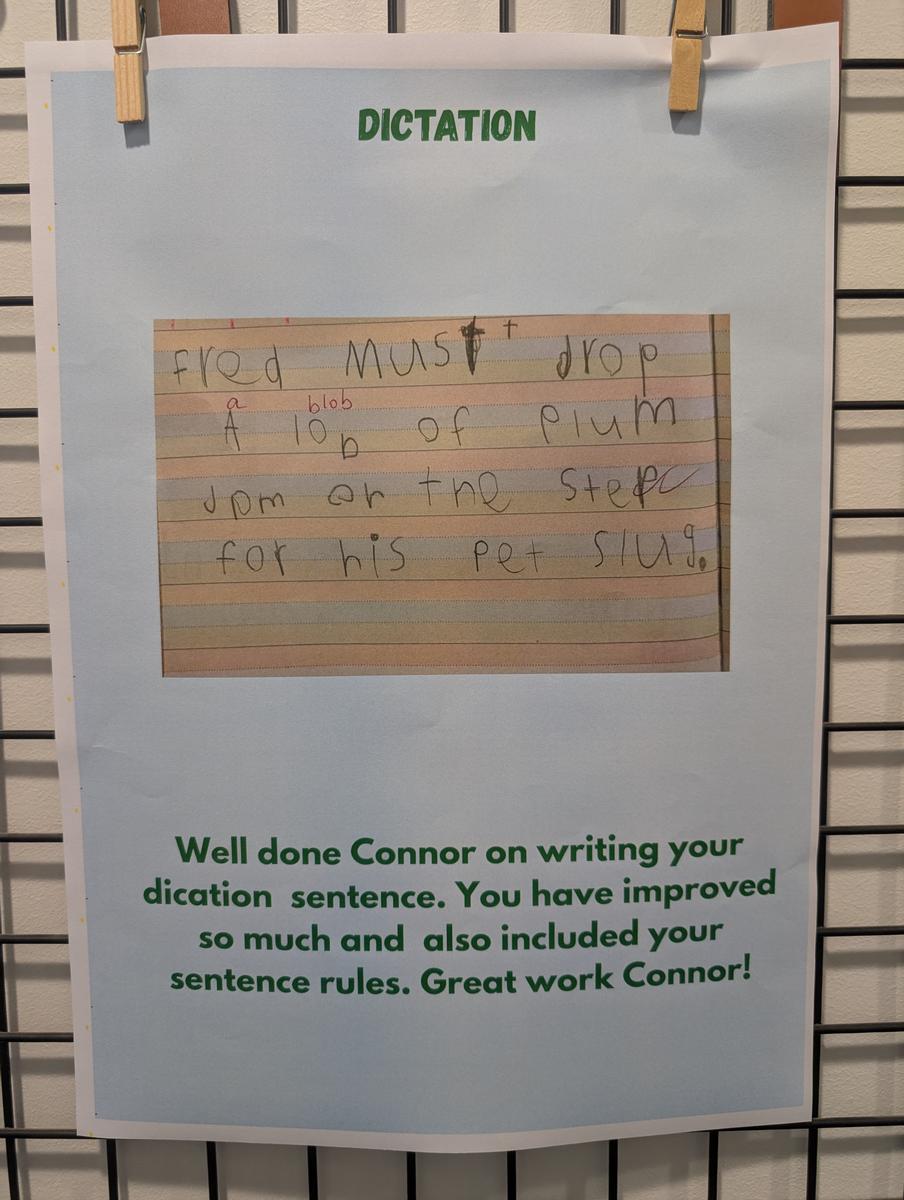 DICTATION
fred Must t drop
a blob
A lob of Plum
Jpm on the Step
for his Pet Slug.
Well done Connor on writing your
dication sentence. You have improved
so much and also included your
sentence rules. Great work Connor!